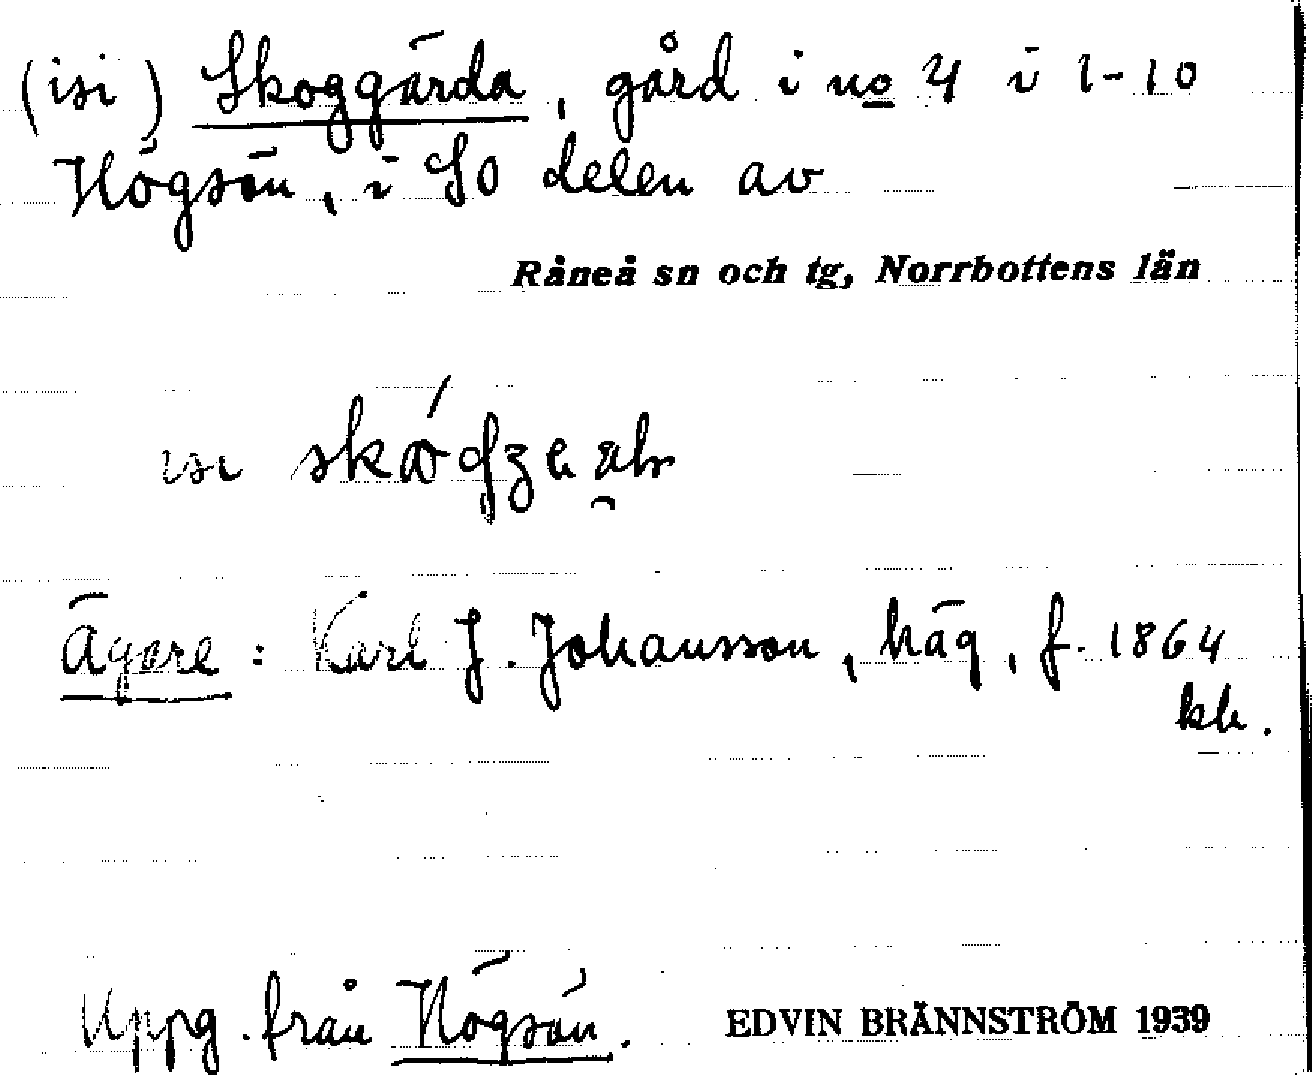 (isi) Skoggärda, gård i no 4 i 1-10
Högsön, i SO delen av
Råneå sn och tg, Norrbottens län
isi
Ägare: Karl J. Johansson, häg, f. 1864
kb.
Uppg. från Högsön.
EDVIN BRÄNNSTRÖM 1939